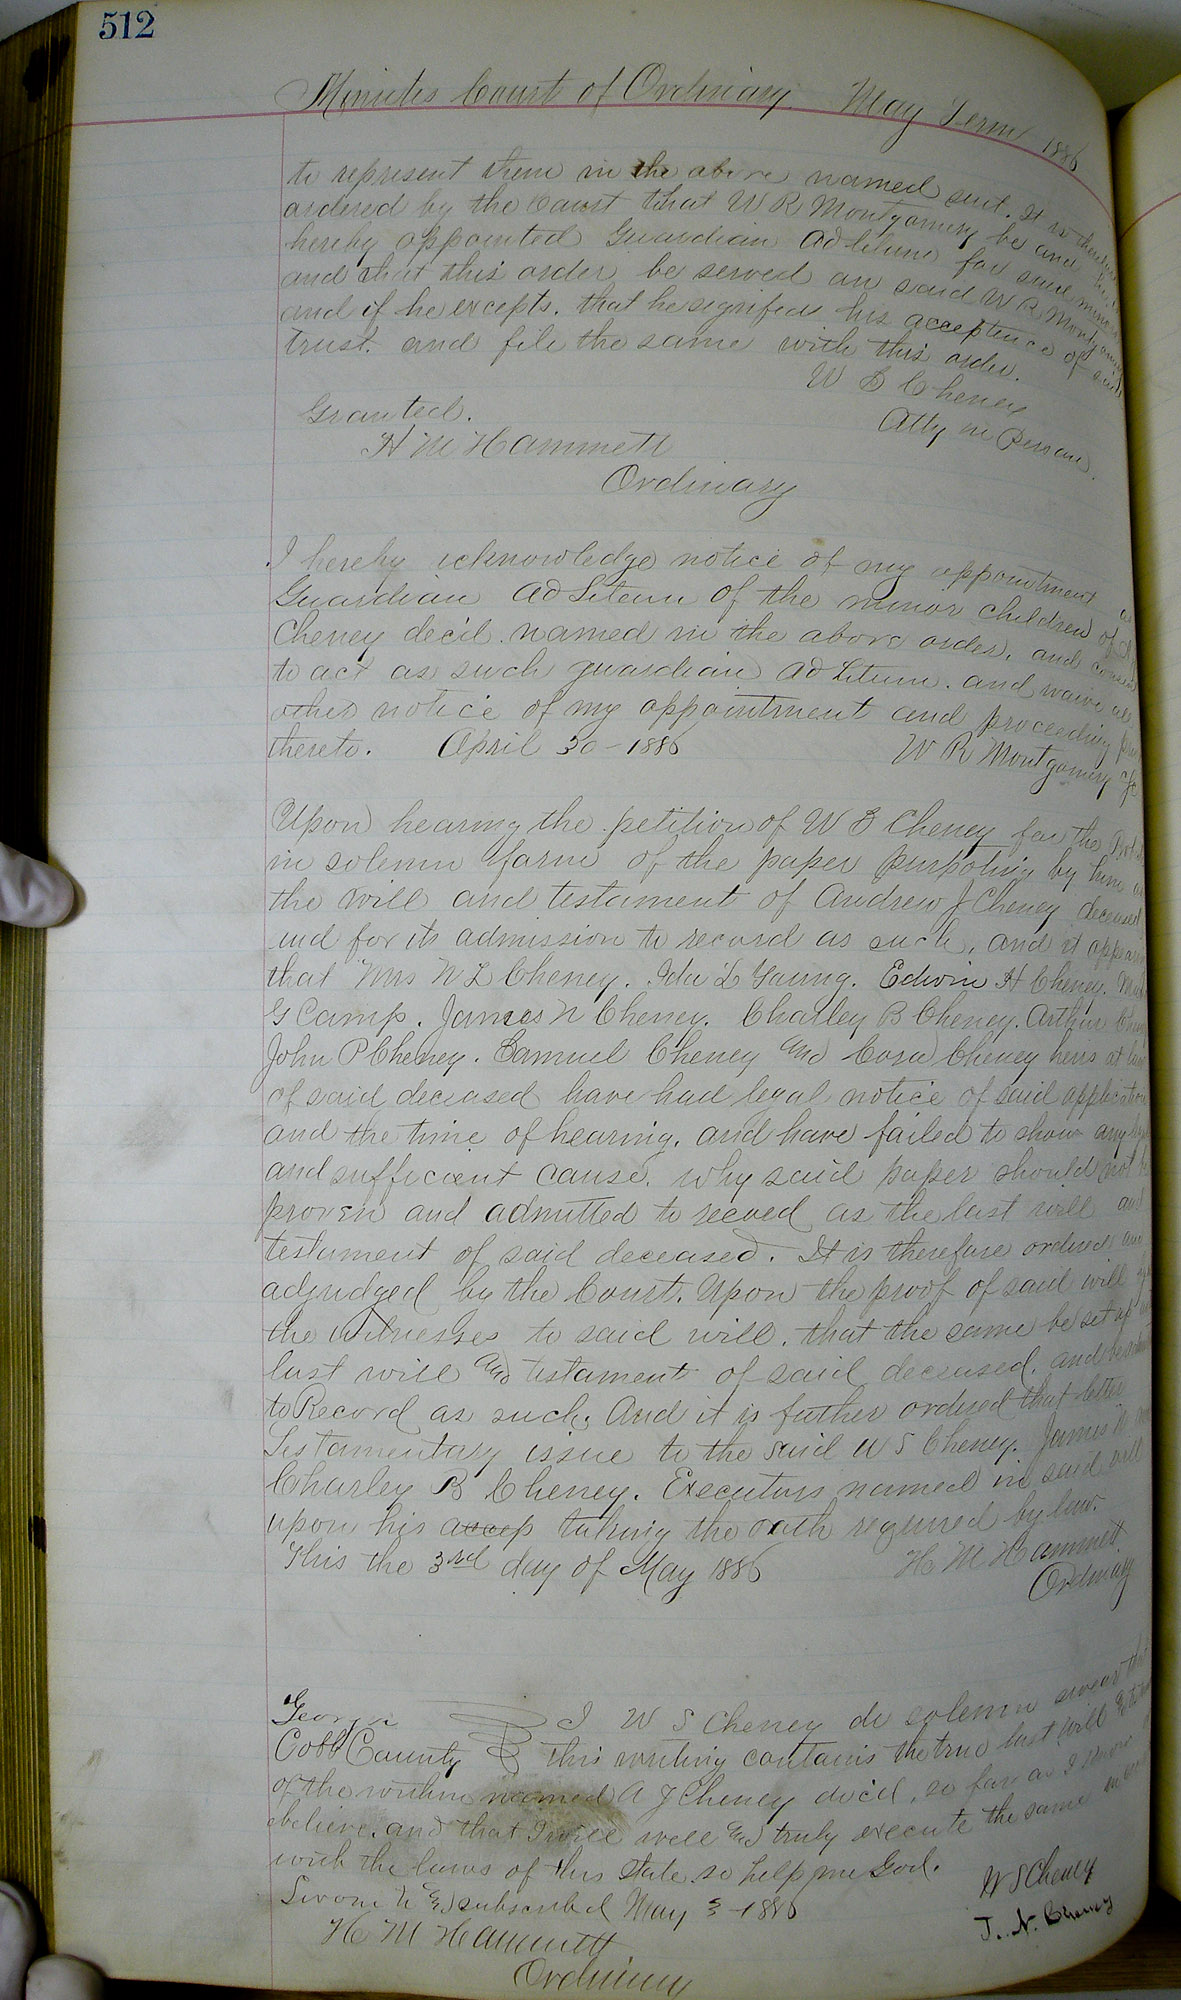 512
Minutes Court of Ordinary May Term 1886
to represent them in the above named suit. It is
ordered by the Court that W R Montgomery be and
hereby appointed Guardian ad litum for said
and that this order be served on said W R Montgomery
and if he excepts. that he signifies his acceptence of said
trust. and file the same with this order.
W S Cheney
Atty in Person.
Granted.
H M Hammett
Ordinary
I hereby acknowledge notice of my appointment as
Guardian ad Litum of the minor children of
Cheney dec'd. named in the above order. and consent
to act as such guardian ad Litum. and waive all
other notice of my appointment and proceeding
thereto. April 30 - 1886
W R Montgomery
Upon hearing the petition of W S Cheney for the
in solemn form of the paper purpoting by him as
the will and testament of Andrew J Cheney deceased
and for its admission to record as such. and it
that Mrs N L Cheney. Ida L Young. Edwin H Cheney.
G Camp. James N Cheney. Charley B Cheney. Arthur
John P Cheney. Samuel Cheney and Cora Cheney heirs at law
of said deceased have had legal notice of said application
and the time of hearing. and have failed to show any
and sufficient cause. why said paper should not be
proven and admitted to record as the last will and
testament of said deceased. It is therefore ordered and
adjudged by the Court. Upon the proof of said will
the witnesses to said will. that the same be set up
last will and testament of said deceased. and
to Record as such. And it is futher ordered that letters
Testamentary issue to the said W S Cheney. James N
Charley B Cheney. Executors named in said will
upon his accep taking the oath required by law.
This the 3rd day of May 1886
H M Hammett
Ordinary
Georgia
Cobb County
I W S Cheney do solemn swear that
this writing contains the true last will
of the within named A J Cheney dec'd, so far as I know
believe. and that I will well and truly execute the same
with the laws of this State. so help me God.
Sworn to and subscribed May 3 - 1886
W S Cheney
J. N. Cheney
H M Hammett
Ordinary